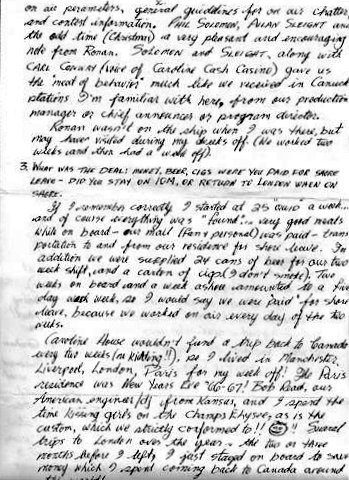 on air parameters, general guidelines for on air chatter,
and contest information. PHIL SOLOMON, ALLAN SLEIGHT and
the odd time (Christmas) a very pleasant and encouraging
note from Ronan. SOLOMON and SLEIGHT, along with
CARL CONWAY (voice of Caroline Cash Casino) gave us
the "meat of behavior" much like we received in Canuck
stations I'm familiar with here, from our production
manager or chief announcer or program director.
Ronan wasn't on the ship when I was there, but
may have visited during my weeks off. (We worked two
weeks and then had a week off).
3. WHAT WAS THE DEAL? MONEY, BEER, CIGS WERE YOU PAID FOR SHORE
LEAVE - DID YOU STAY ON IOM, OR RETURN TO LONDON WHEN ON
SHORE.
If I remember correctly I started at 25 quid a week...
and of course everything was "found".. very good meals
while on board - our mail (Fan & personal) was paid - trans
portation to and from our residence for shore leave. In
addition we were supplied 24 cans of beer for our two
week shift, and a carton of cigs (I don't smoke). Two
weeks on board and a week ashore amounted to a five
day work week, so I would say we were paid for shore
leave, because we worked on air every day of the two
weeks.
Caroline House wouldn't fund a trip back to Canada
every two weeks (no kidding!!), so I lived in Manchester,
Liverpool, London, Paris for my week off! The Paris
residence was New Years Eve '66-67! Bob Read, our
American engineer/dj from Kansas, and I spent the
time kissing girls on the Champs Elysee, as is the
custom, which we strictly conformed to!! !! Several
trips to London over the year - the two or three
months before I left, I just stayed on board to save
money which I spent coming back to Canada around
the world!